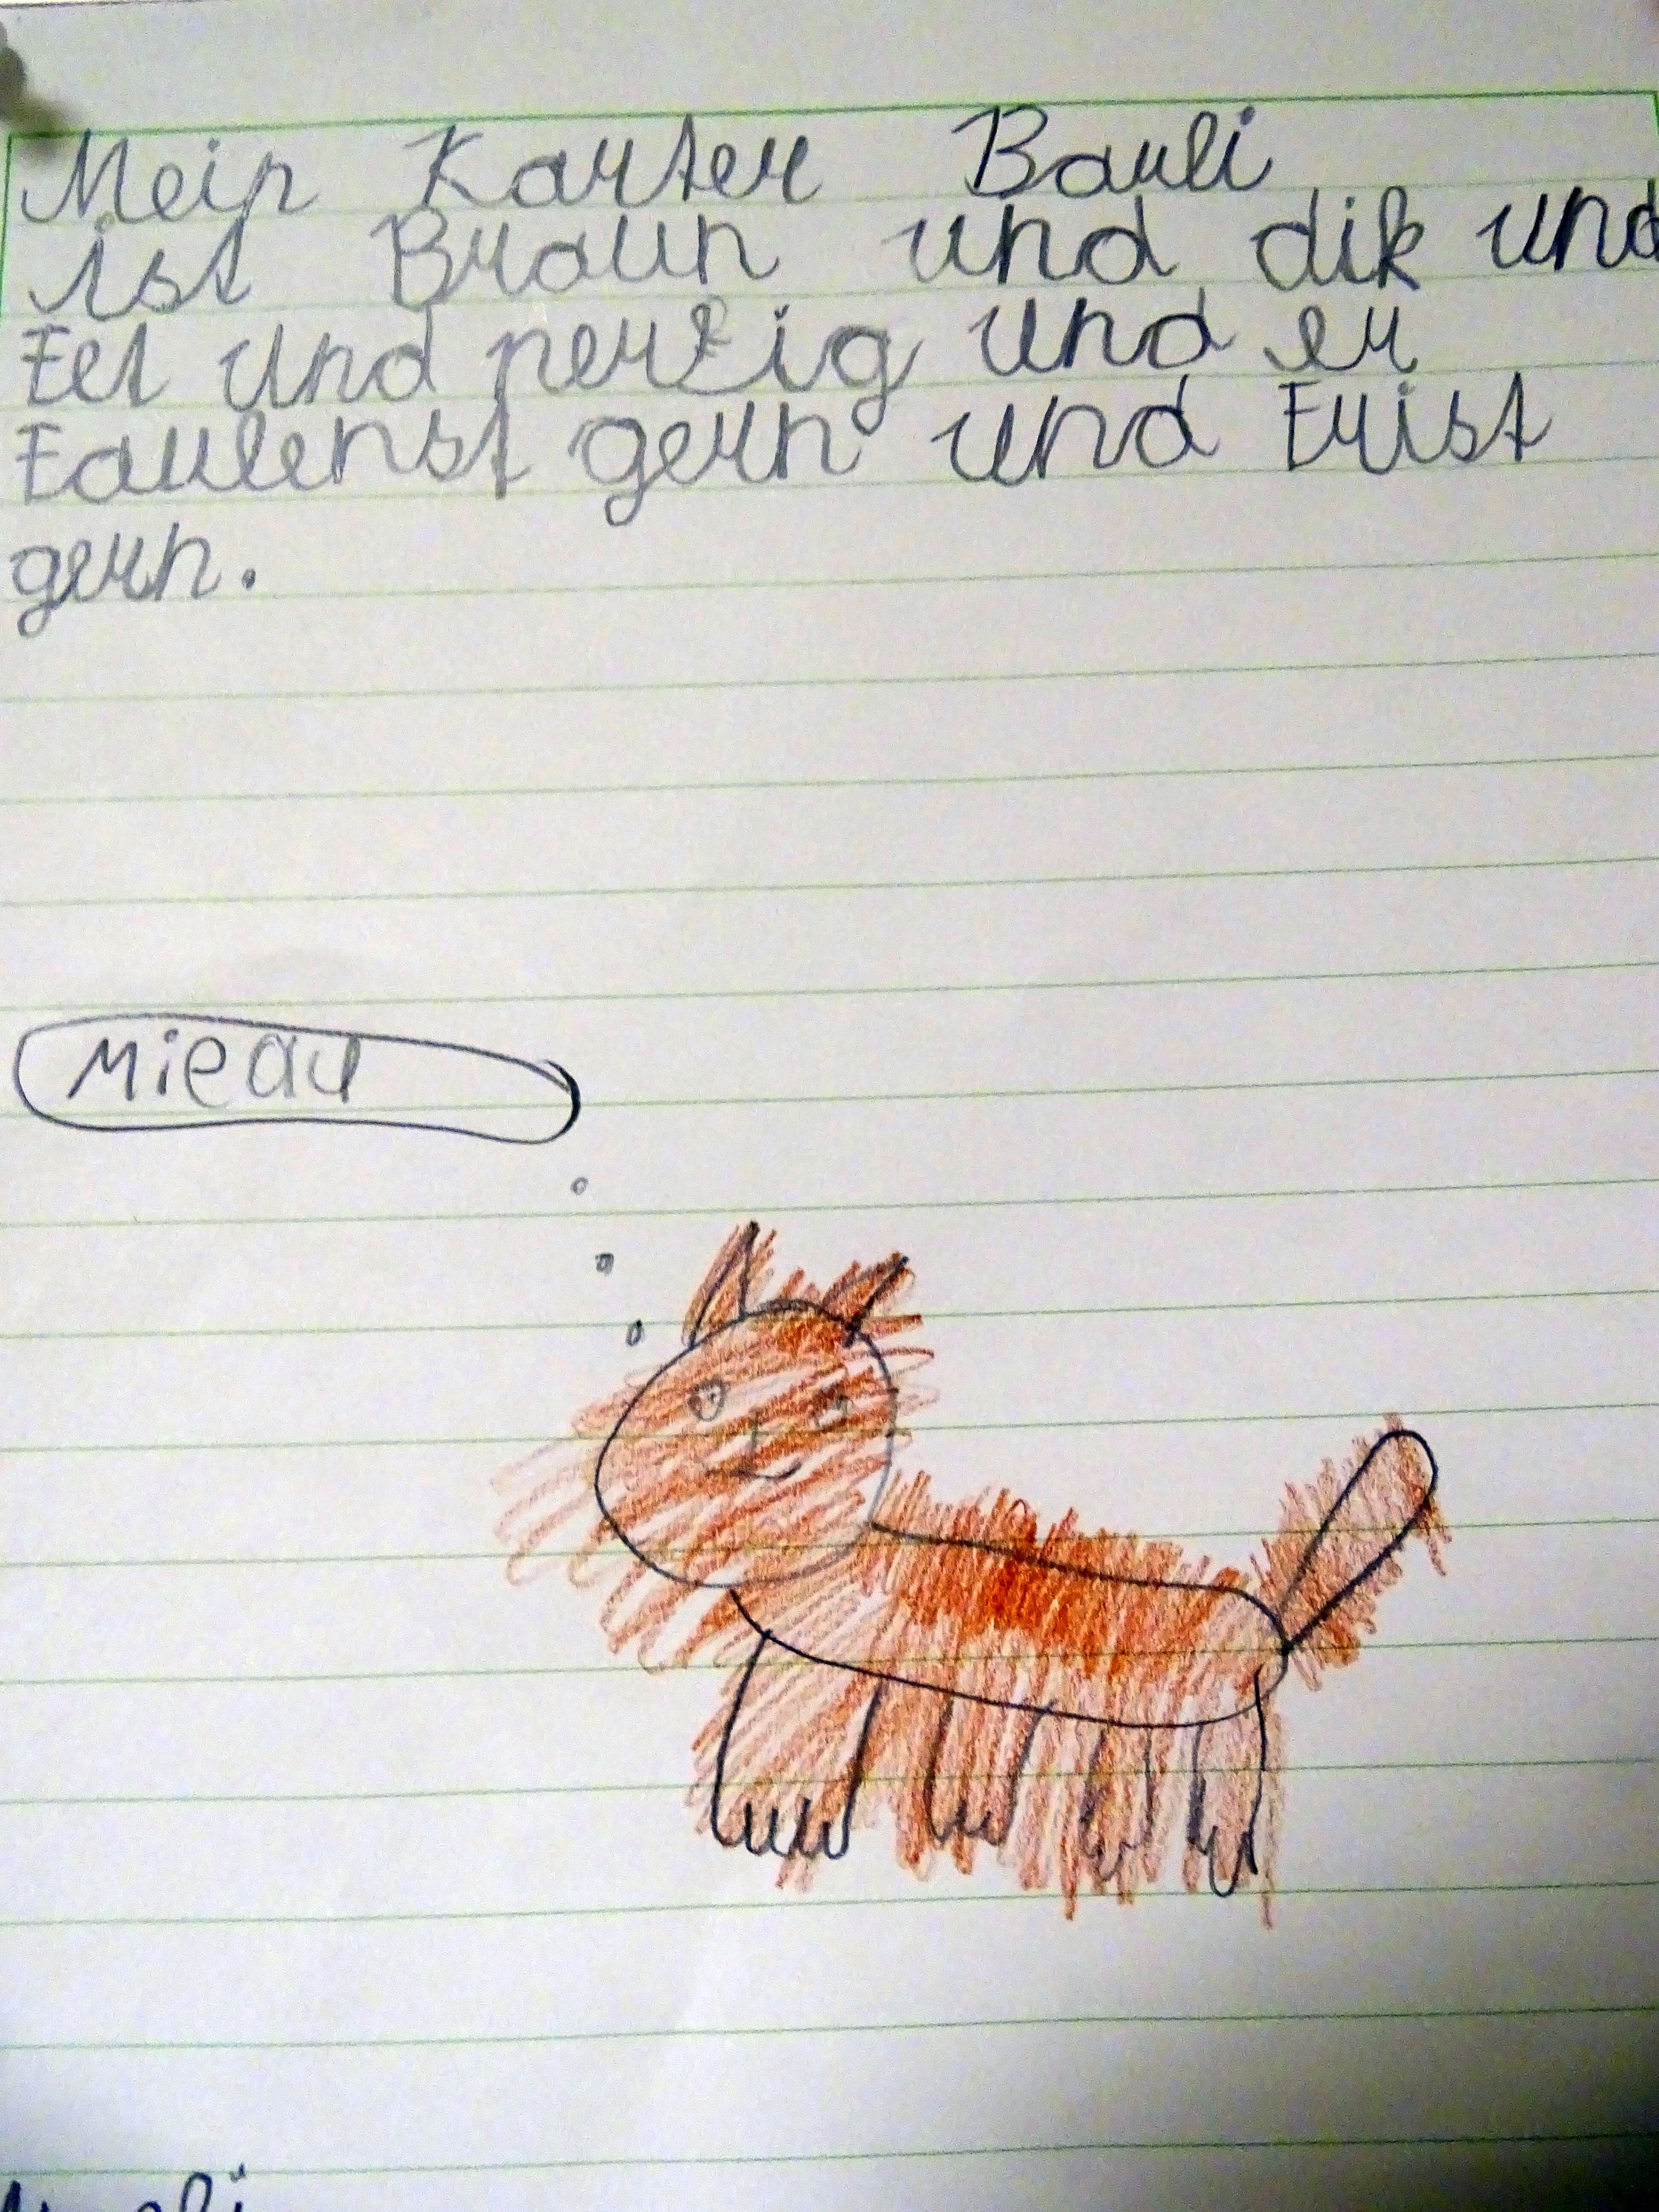 Mein Karter Bauli
ist Braun und dik und
Fet und herzig und er
Faulenst gern und Frist
gern.
Mieau